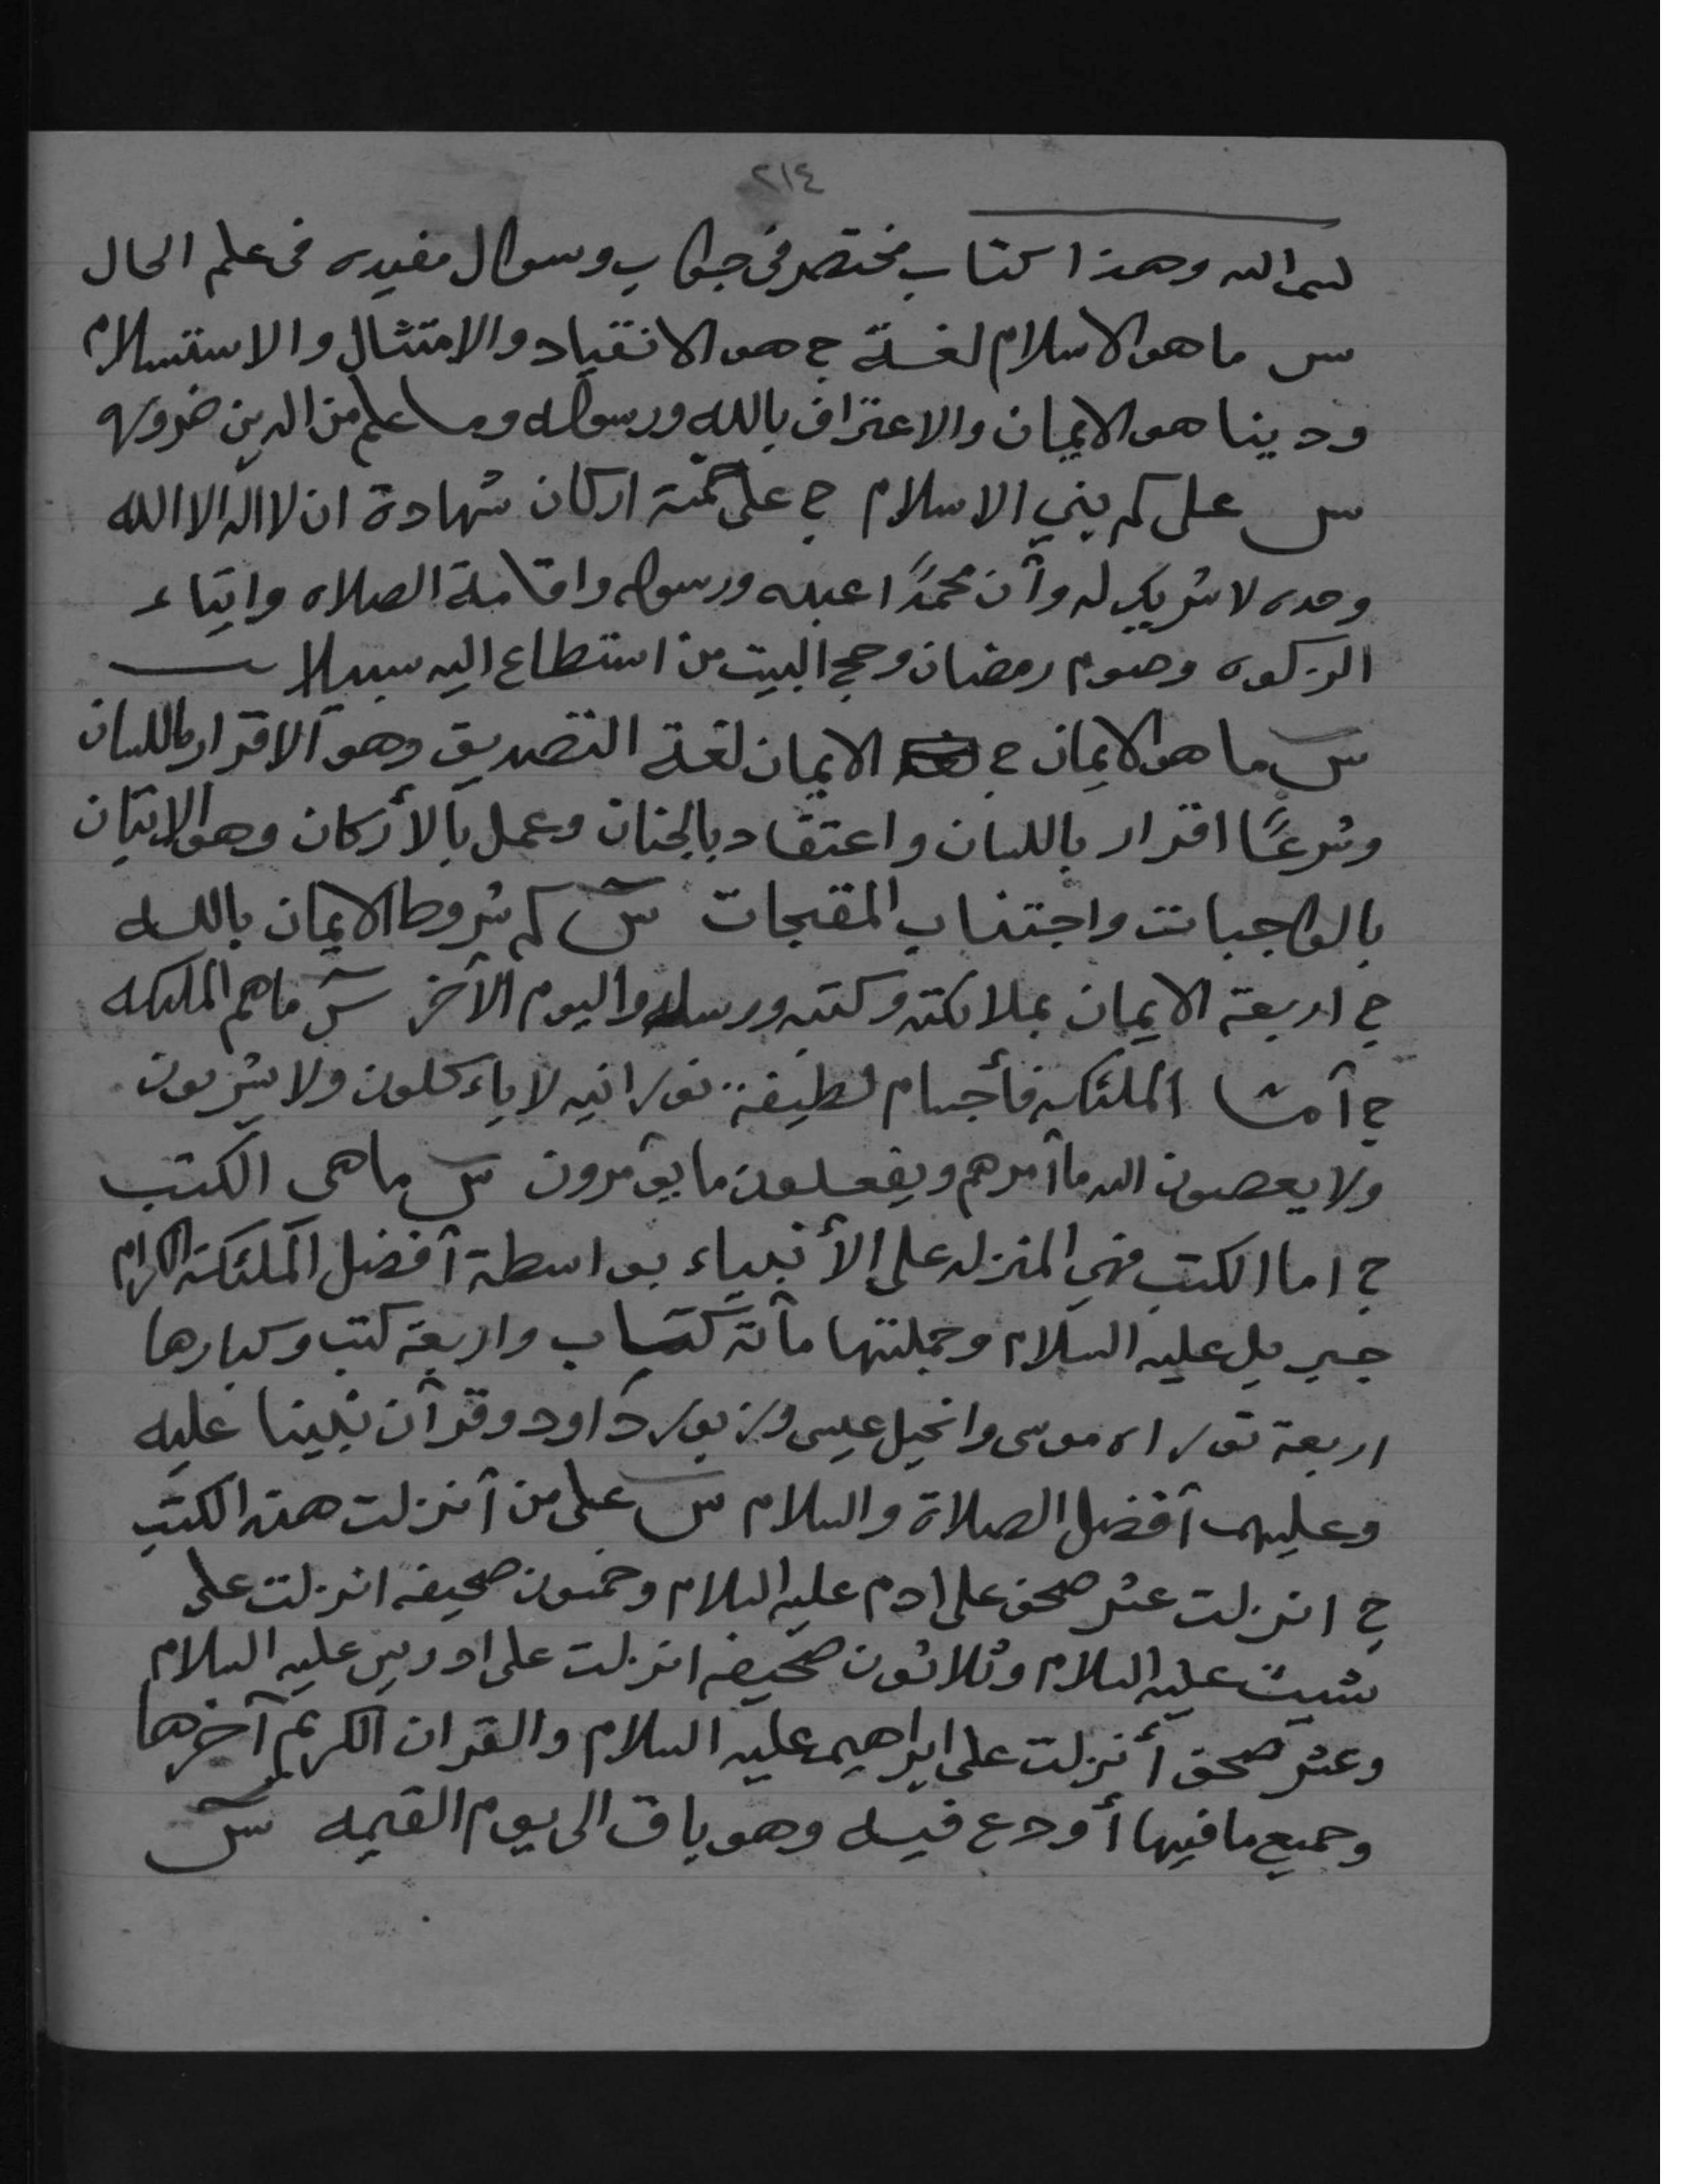 ٢١٤
بسم الله وهذا كتاب مختصر في جواب وسوال مفيده في علم الحال
س ما هو الاسلام لغة ج هو الانقياد والامتثال والاستسلام
ودينا هو الايمان والاعتراف بالله ورسوله وما علم من الدين ضروره
س على كم بني الاسلام ج على خمسة اركان شهادة ان لا اله الا الله
وحده لا شريك له وأن محمدًا عبده ورسوله واقامة الصلاه وايتاء
الزكوه وصوم رمضان وحج البيت من استطاع اليه سبيلا
س ما هو الايمان ج الايمان لغة التصديق وهو الاقرار باللسان
وشرعًا اقرار باللسان واعتقاد بالجنان وعمل بالأركان وهو الاتيان
بالواجبات واجتناب المقبحات س كم شروط الايمان بالله
ج اربعة الايمان بملائكته وكتبه ورسله واليوم الآخر س ما هم الملئكه
ج أما الملئكه فأجسام لطيفة نورانيه لا ياءكلون ولا يشربون
ولا يعصون الله ما أمرهم ويفعلون ما يؤمرون س ما هي الكتب
ج اما الكتب فهي المنزله على الأنبياء بواسطة أفضل الملئكة الكرام
جبريل عليه السلام وجملتها مائة كتاب واربعة كتب وكبارها
اربعة توراه موسى وانجيل عيسى وزبور داود وقرآن نبينا عليه
وعليهم أفضل الصلاة والسلام س على من أنزلت هذه الكتب
ج انزلت عشر صحف على ادم عليه السلام وخمسون صحيفه انزلت على
شيث عليه السلام وثلاثون صحيفه انزلت على ادريس عليه السلام
وعشر صحف أنزلت على ابراهيم عليه السلام والقران الكريم آخرها
وجميع ما فيها أودع فيه وهو باق الى يوم القيمه س